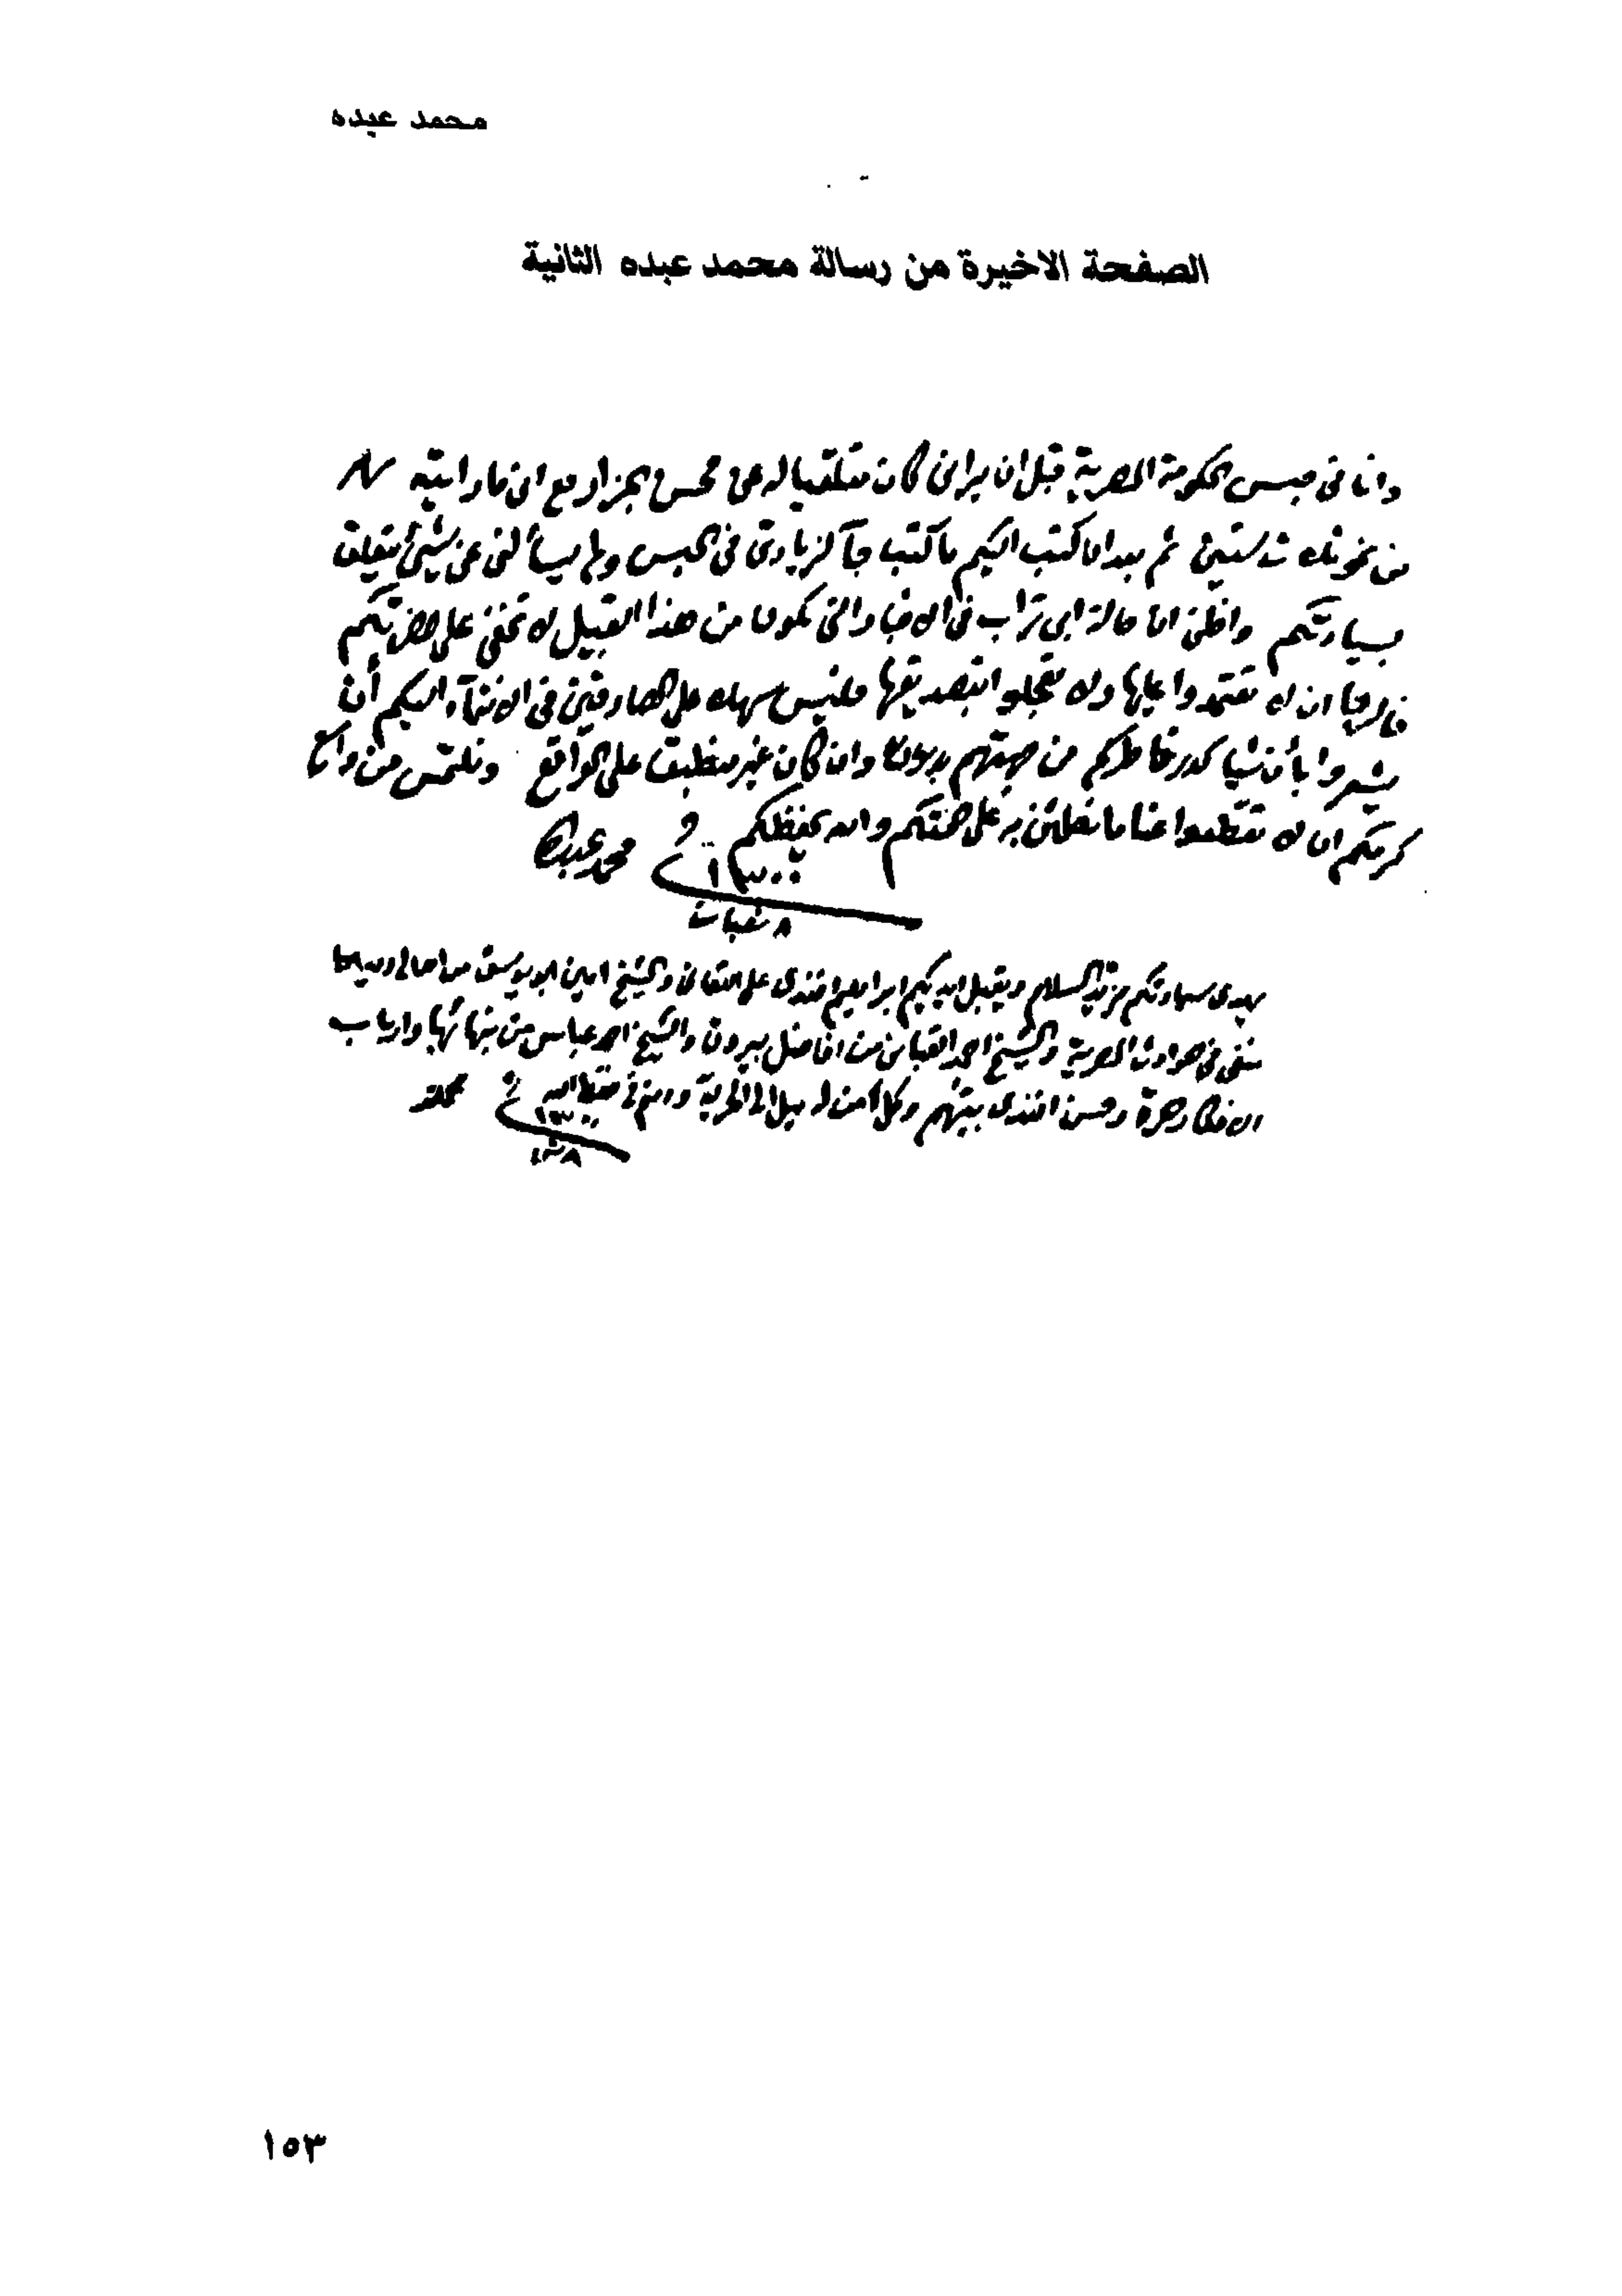 محمد عبده
الصفحة الاخيرة من رسالة محمد عبده الثانية
وانا في حبس الحكومة المصرية قبل ان يراني كان متلقيا له عن محسن الجزار مع اني ما رايته
من نحو ثلاث سنين ثم بعد ان كتب اليكم ما كتب جآ لزيارتي في الحبس ولم يسألني عن شيئ يتعلق
بسيادتكم واظن ان حالة ابي تراب في الاخبار التي تكون من هذا القبيل لا تخفى على حضرتكم
فالرجا ان لا تعتمدوا عليها ولا تعجلوا بتصديقها فليس سهلا على الصادقين في الانتمآء اليكم أن
يشعروا بأن شيا كدر خاطركم من جهتهم وان كان غير منطبق على الواقع ونلتمس من واسع
كرمكم ان لا تقطعوا عنا ما نطمئن به على صحتكم والله يحفظكم
محمد عبده في ١٣٠٠
٨ شعبان
يهدى سيادتكم مزيد السلام ويقبل ايديكم ابراهيم افندى اللقاني والشيخ امين ابو يوسف من
نفى في حوادث المصرية والشيخ احمد القباني من افاضل بيروت والشيخ احمد عباس من نبهائها وارباب
الافكار الحرة وحسن افندى بيهم وكل من له ميل الى الحرية في ١٣٠٠ محمد
٨ ش
١٥٣